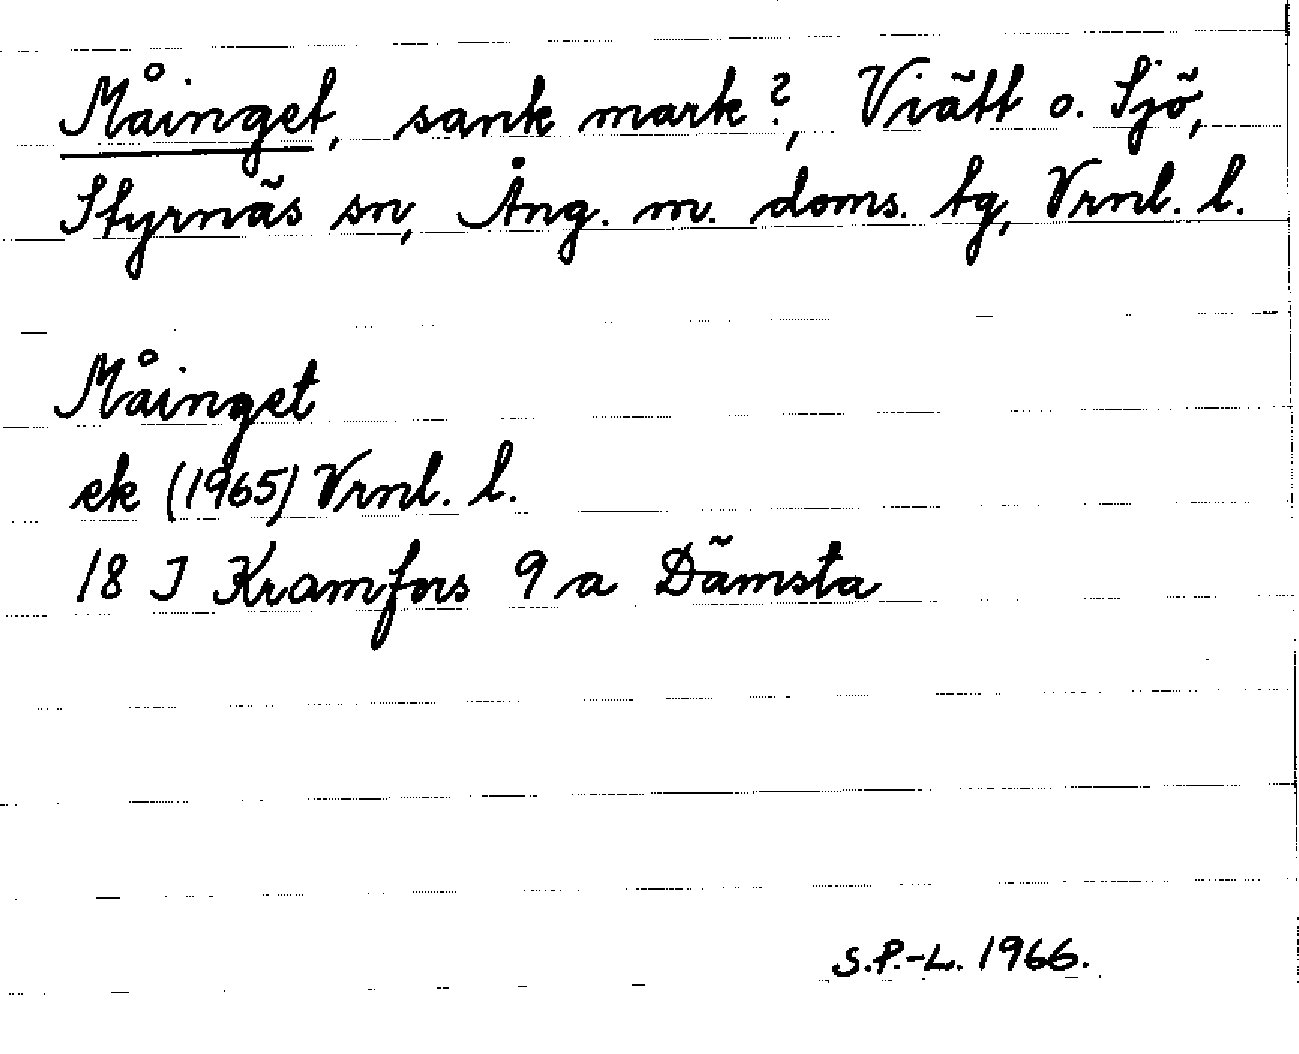 Måinget, sank mark?, Viätt o. Sjö,
Styrnäs sn, Ång. m. doms. tg, Vrnl. l.
Måinget
ek (1965) Vrnl. l.
18 J Kramfors 9 a Dämsta
S.P.-L. 1966.